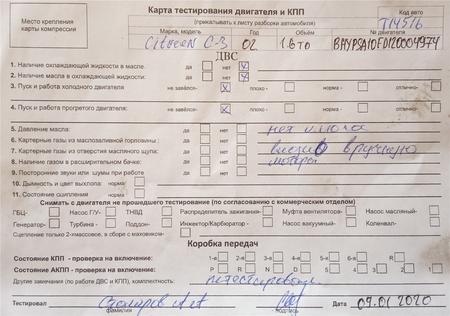 Карта тестирования двигателя и КПП
Место крепления карты компрессия
(прикалывать к листу разборки автомобиля)
Код авто
T14516
Марка, модель Год Объём № двигателя
Citroen C-3 02 1.6 то
ДВС
1. Наличие охлаждающей жидкости в масле: да нет x
2. Наличие масла в охлаждающей жидкости: да нет x
3. Пуск и работа холодного двигателя не завёлся- x плохо - норма - отлично-
4. Пуск и работа прогретого двигателя: не завёлся- x плохо - норма - отлично-
5. Давление масла: да нет нет
6. Картерные газы из маслозаливной горловины : да нет вручную
7. Картерные газы из отверстия масляного щупа: да нет
8. Наличие газов в расширительном бачке: да нет моторы
9. Посторонние звуки или шумы при работе да нет
10. Дымность и цвет выхлопа: норма -
11. Состояние ошиповки норма -
Снимать с двигателя не прошедшего тестирование (по согласованию с коммерческим отделом)
ГБЦ- Насос Г/У- ТНВД Распределитель зажигания- Муфта вентилятора- Насос масляный-
Генератор- Турбина - Поддон- Инжектор/Карбюратор - Насос вакуумный- Коленвал-
Сцепление только 2-хмассовое, в сборе с маховиком-
Коробка передач
Состояние КПП - проверка на включение: 1-я 2-я 3-я 4-я 5-я 6-я R
Состояние АКПП - проверка на включение: P R N D 5 4 3 2 1
Другие замечания (по работе ДВС и КПП), комплектность:
Тестировал фамилия подпись Дата 09.01 2020